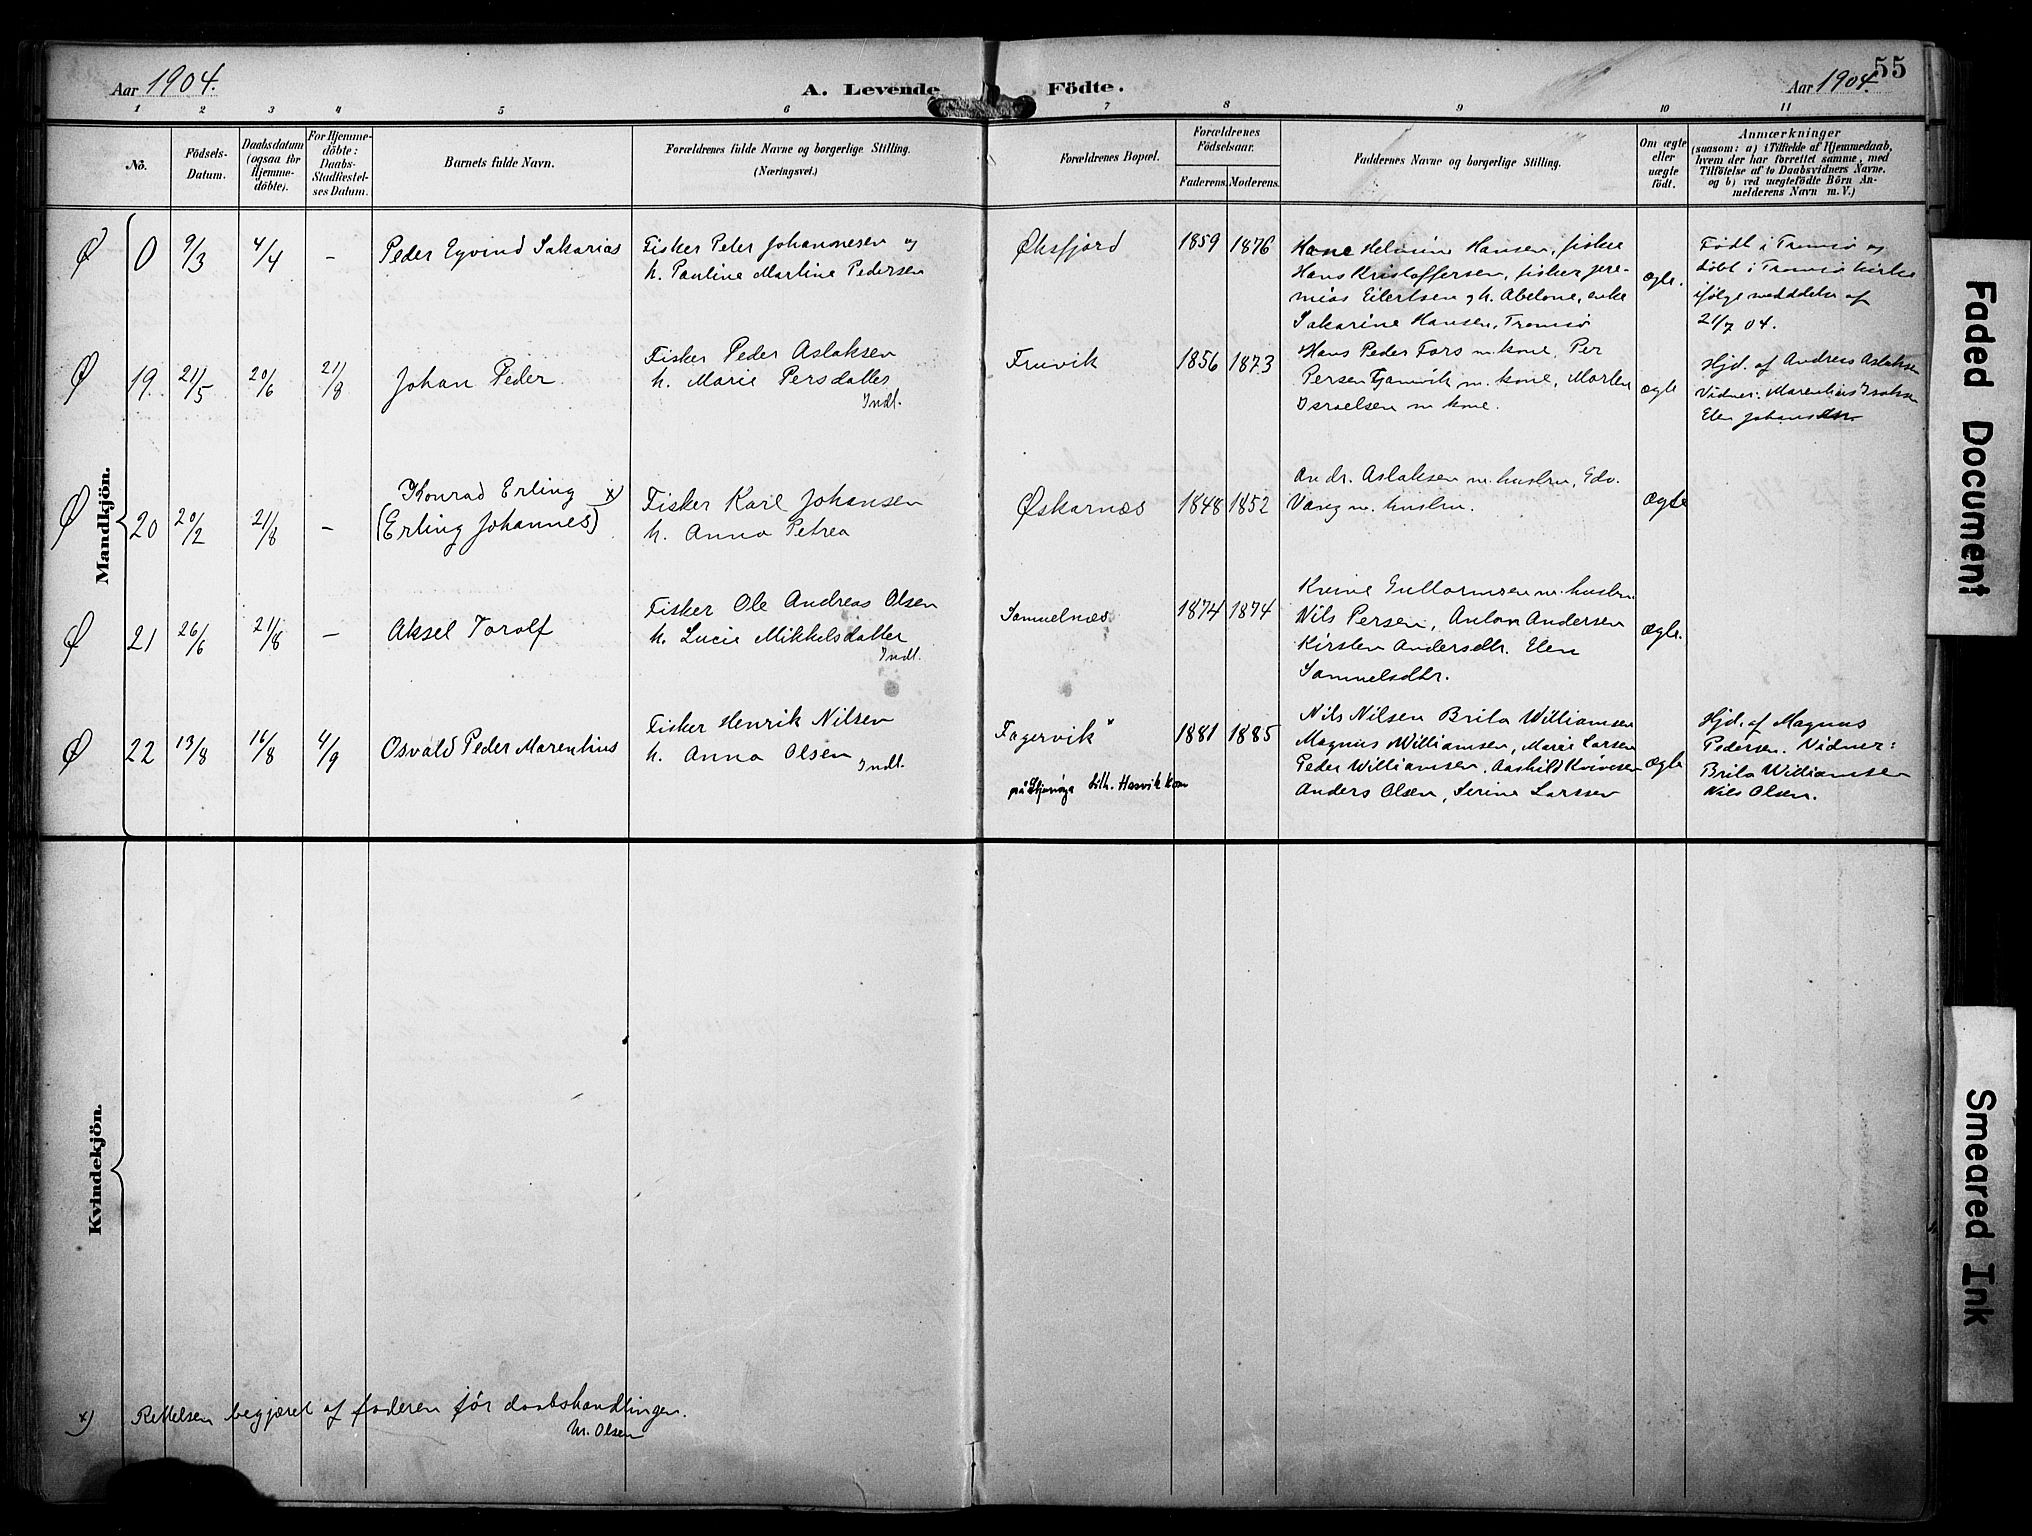 Aar 1904.
A. Levende Födte.
Aar 1904.
55
1 2 3 4 5 6 7 8 9 10 11
No.
Födsels-Datum.
Daabsdatum (ogsaa för Hjemme-döbte).
For Hjemme-döbte: Daabs-Stadfæstel-ses Datum.
Barnets fulde Navn.
Forældrenes fulde Navne og borgerlige Stilling.
(Næringsvei.)
Forældrenes Bopæl.
Forældrenes Födselsaar.
Faderens. Moderens.
Faddernes Navne og borgerlige Stilling.
Om ægte eller uægte födt.
Anmærkninger
(saasom: a) i Tilfælde af Hjemmedaab,
hvem der har forrettet samme, med
Tilföielse af to Daabsvidners Navne.
og b) ved uægtefödte Börn An-
melderens Navn m. V.)
Mandkjön.
Ø 0 9/3 4/4 - Peder Eyvind Sakarias
Fisker Peter Johannesen og
h. Pauline Martine Pedersen
Øksfjord 1859 1876
Kone Helmine Hansen, fisker
Hans Kristoffersen, fisker Jere-
mias Eilertsen og h. Abelone, enke
Sakarine Hansen, Tromsø
ægte.
Født i Tromsø og
døbt i Tromsø kirke
ifølge meddelse af
21/7 04.
Ø 19. 21/5 20/6 21/8 Johan Peder.
Fisker Peder Aslaksen
h. Marie Persdatter
Indl.
Fruvik 1856 1873
Hans Peder Fors m. kone, Per
Persen Tjamvik m. kone, Morten
Israelsen m kone.
ægte
Hjd. af Andreas Aslaksen
Vidner: Marenhius Isaksen
Elen Johansdtr.
Ø 20 20/2 21/8 -
Konrad Erling x)
(Erling Johannes)
Fisker Karl Johansen
h. Anna Petrea
Øskarnæs 1848 1852
Andr. Aslaksen m. hustru, Edv.
Vang m. hustru.
ægte
Ø 21 26/6 21/8 - Aksel Torolf
Fisker Ole Andreas Olsen
h. Lucie Mikkelsdatter
Indl.
Samuelnæs 1874 1874
Kvine Guttormsen m. hustru.
Nils Persen, Anton Andersen
Kirsten Andersdtr. Elen
Samuelsdtr.
ægte.
Ø 22 13/8 16/8 4/9 Osvald Peder Marenhius
Fisker Henrik Nilsen
h. Anna Olsen
Indl.
Fagervik 1881 1885
på Stjernøya tilh. Hasvik kom
Nils Nilsen Brita Williamsen
Magnus Williamsen, Marie Larsen
Peder Williamsen, Aashild Kvivesen
Anders Olsen, Serine Larsen
ægte
Hjd. af Magnus
Pedersen. Vidner:
Brita Williamsen
Nils Olsen.
Kvindekjön.
x) Rettelsen begjæret af faderen før daabshandlingen.
M. Olsen
Faded Document
Smeared Ink